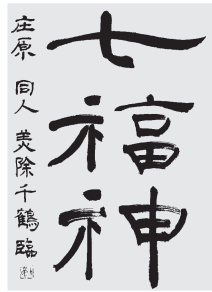 七福神
庄原 同人 美除千鶴臨